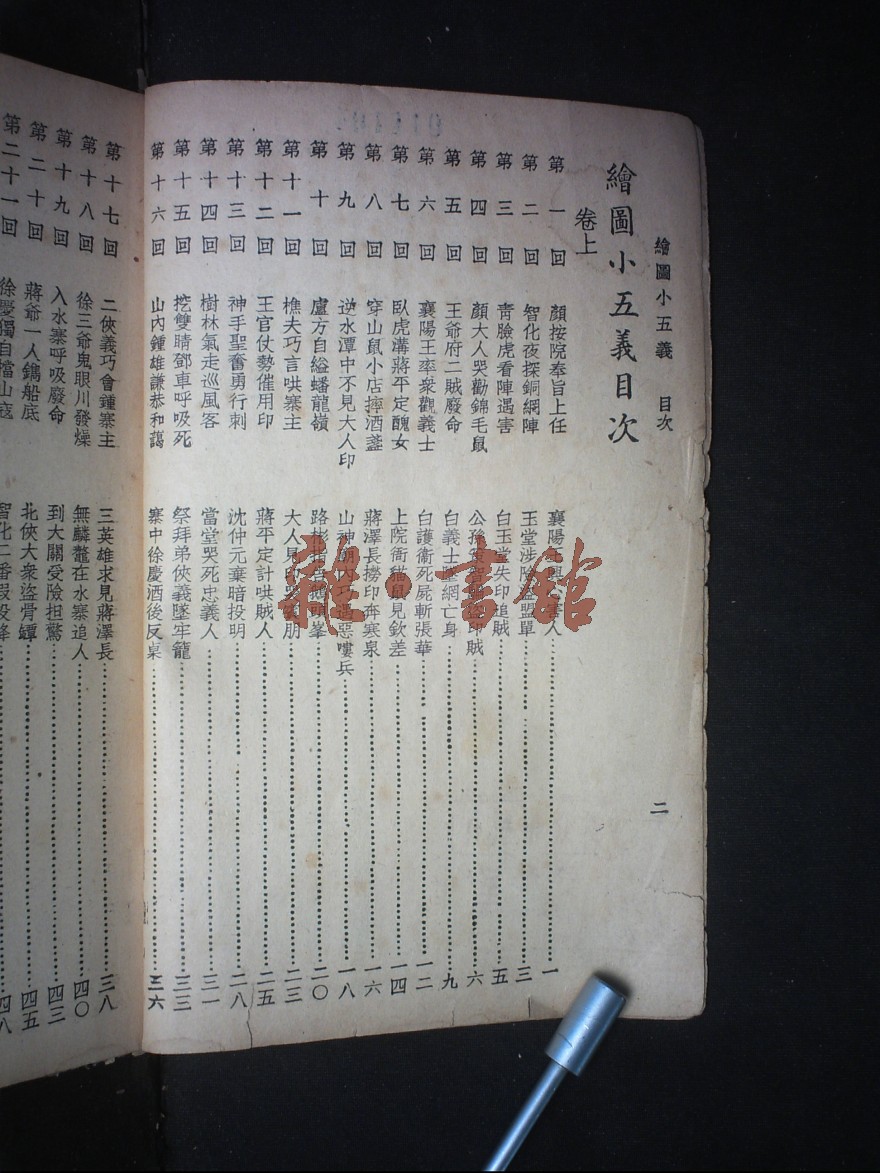 繪圖小五義 目次 二
繪圖小五義目次
卷上
第一回 顏按院奉旨上任 襄陽 害人 一
第二回 智化夜探銅網陣 玉堂涉險 盟單 三
第三回 靑臉虎看陣遇害 白玉堂失印追賊 五
第四回 顏大人哭勸錦毛鼠 公孫 印賊 六
第五回 王爺府二賊廢命 白義士墜網亡身 九
第六回 襄陽王率衆觀義士 白護衞死屍斬張華 一二
第七回 臥虎溝蔣平定醜女 上院衙貓鼠見欽差 一四
第八回 穿山鼠小店摔酒盞 蔣澤長撈印奔寒泉 一六
第九回 逆水潭中不見大人印 山神廟內巧遇惡嘍兵 一八
第十回 盧方自縊蟠龍嶺 路彬指告鵝頭峯 二〇
第十一回 樵夫巧言哄寨主 大人見印哭 朋 二三
第十二回 王官仗勢催用印 蔣平定計哄賊人 二五
第十三回 神手聖奮勇行刺 沈仲元棄暗投明 二八
第十四回 樹林氣走巡風客 當堂哭死忠義人 三一
第十五回 挖雙睛鄧車呼吸死 祭拜弟俠義墜牢籠 三三
第十六回 山內鍾雄謙恭和藹 寨中徐慶酒後反桌 三六
第十七回 二俠義巧會鍾寨主 三英雄求見蔣澤長 三八
第十八回 徐三爺鬼眼川發燥 無鱗鼇在水寨追人 四〇
第十九回 入水寨呼吸廢命 到大關受險担驚 四三
第二十回 蔣爺一人鐫船底 北俠大衆盜骨罈 四五
第二十一回 徐慶獨自擋山寇 智化二番假投降 四八
雜·書館